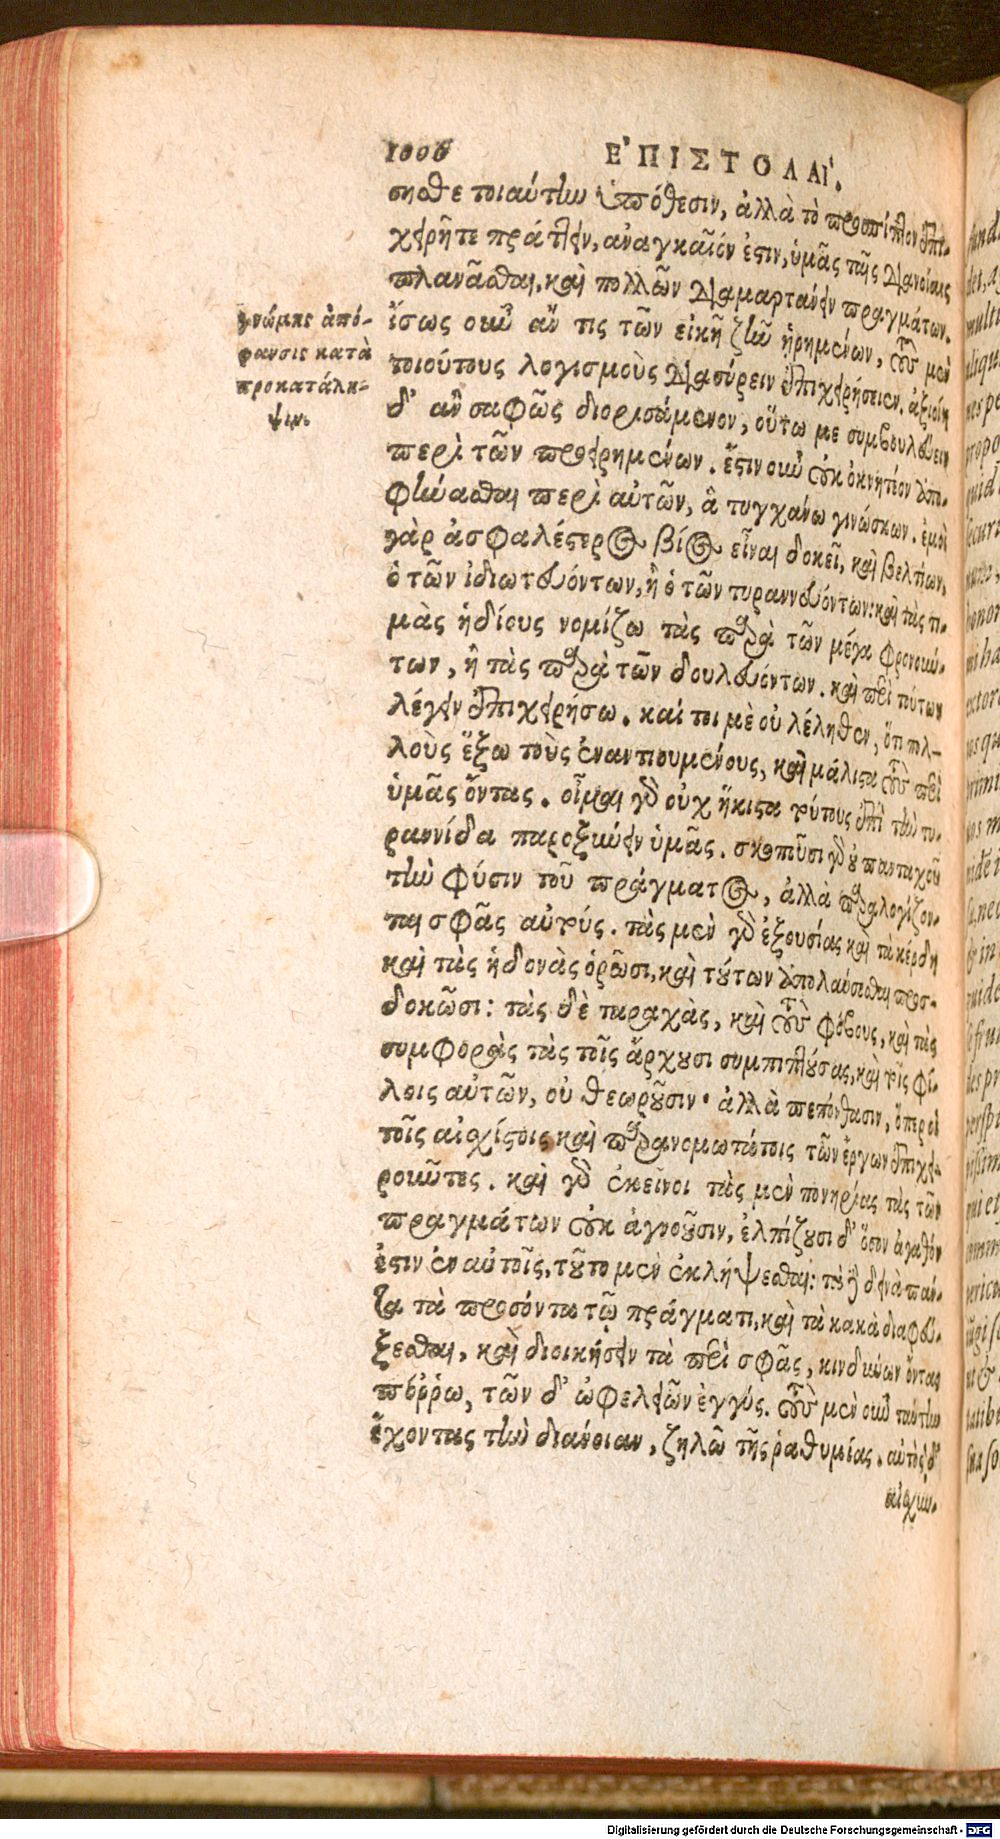 1006
ΕΠΙΣΤΟΛΑΙ.
σησθε τοιαύτην ὑπόθεσιν, ἀλλὰ τὸ προσπίπτον ἐπι-
χειρῆτε πράττειν, ἀναγκαῖόν ἐστιν, ὑμᾶς ταῖς διανοίαις
πλανᾶσθαι, καὶ πολλῶν διαμαρτάνειν πραγμάτων.
ἴσως οὖν ἄν τις τῶν εἰκῇ ζῆν ᾑρημένων, τοὺς μὲν
τοιούτους λογισμοὺς διασύρειν ἐπιχειρήσειεν. ἀξιοίη
δ' ἂν σαφῶς διορισάμενον, οὕτω με συμβουλεύειν
περὶ τῶν προειρημένων. ἔστιν οὖν οὐκ ὀκνητέον ἀπο-
φήνασθαι περὶ αὐτῶν, ἃ τυγχάνω γινώσκων. ἐμοὶ
γὰρ ἀσφαλέστερος βίος εἶναι δοκεῖ, καὶ βελτίων,
ὁ τῶν ἰδιωτευόντων, ἢ ὁ τῶν τυραννευόντων: καὶ τὰς τι-
μὰς ἡδίους νομίζω τὰς παρὰ τῶν μέγα φρονούν-
των, ἢ τὰς παρὰ τῶν δουλευόντων. καὶ περὶ τούτων
λέγειν ἐπιχειρήσω. καί τοι μὲ οὐ λέληθεν, ὅτι πολ-
λοὺς ἕξω τοὺς ἐναντιουμένους, καὶ μάλιστα τοὺς περὶ
ὑμᾶς ὄντας. οἶμαι γὰρ οὐχ ἥκιστα τούτους ἐπὶ τὴν τυ-
ραννίδα παροξύνειν ὑμᾶς. σκοποῦσι γὰρ οὐ πανταχοῦ
τὴν φύσιν τοῦ πράγματος, ἀλλὰ παραλογίζον-
ται σφᾶς αὐτούς. τὰς μὲν γὰρ ἐξουσίας καὶ τὰ κέρδη
καὶ τὰς ἡδονὰς ὁρῶσι, καὶ τούτων ἀπολαύσεσθαι προσ-
δοκῶσι: τὰς δὲ ταραχὰς, καὶ τοὺς φόβους, καὶ τὰς
συμφορὰς τὰς τοῖς ἄρχουσι συμπιπτούσας, καὶ τοῖς φί-
λοις αὐτῶν, οὐ θεωροῦσιν· ἀλλὰ πεπόνθασιν, ὅπερ οἱ
τοῖς αἰσχίστοις καὶ παρανομωτάτοις τῶν ἔργων ἐπιχει-
ροῦντες. καὶ γὰρ ἐκεῖνοι τὰς μὲν πονηρίας τὰς τῶν
πραγμάτων οὐκ ἀγνοοῦσιν, ἐλπίζουσι δ' ὅσον ἀγαθόν
ἐστιν ἐν αὐτοῖς, τοῦτο μὲν ἐκλήψεσθαι: τὰ δὲ δεινὰ πάν-
τα τὰ προσόντα τῷ πράγματι, καὶ τὰ κακὰ διαφεύ-
ξεσθαι, καὶ διοικήσειν τὰ περὶ σφᾶς, κινδύνων ὄντας
πόῤῥω, τῶν δ' ὠφελειῶν ἐγγύς. τοὺς μὲν οὖν ταύτην
ἔχοντας τὴν διάνοιαν, ζηλῶ τῆς ῥαθυμίας. αὐτὸς δ'
αἰσχυν-
γνώμης ἀπό-
φανσις κατὰ
προκατάλη-
ψιν.
Digitalisierung gefördert durch die Deutsche Forschungsgemeinschaft - DFG